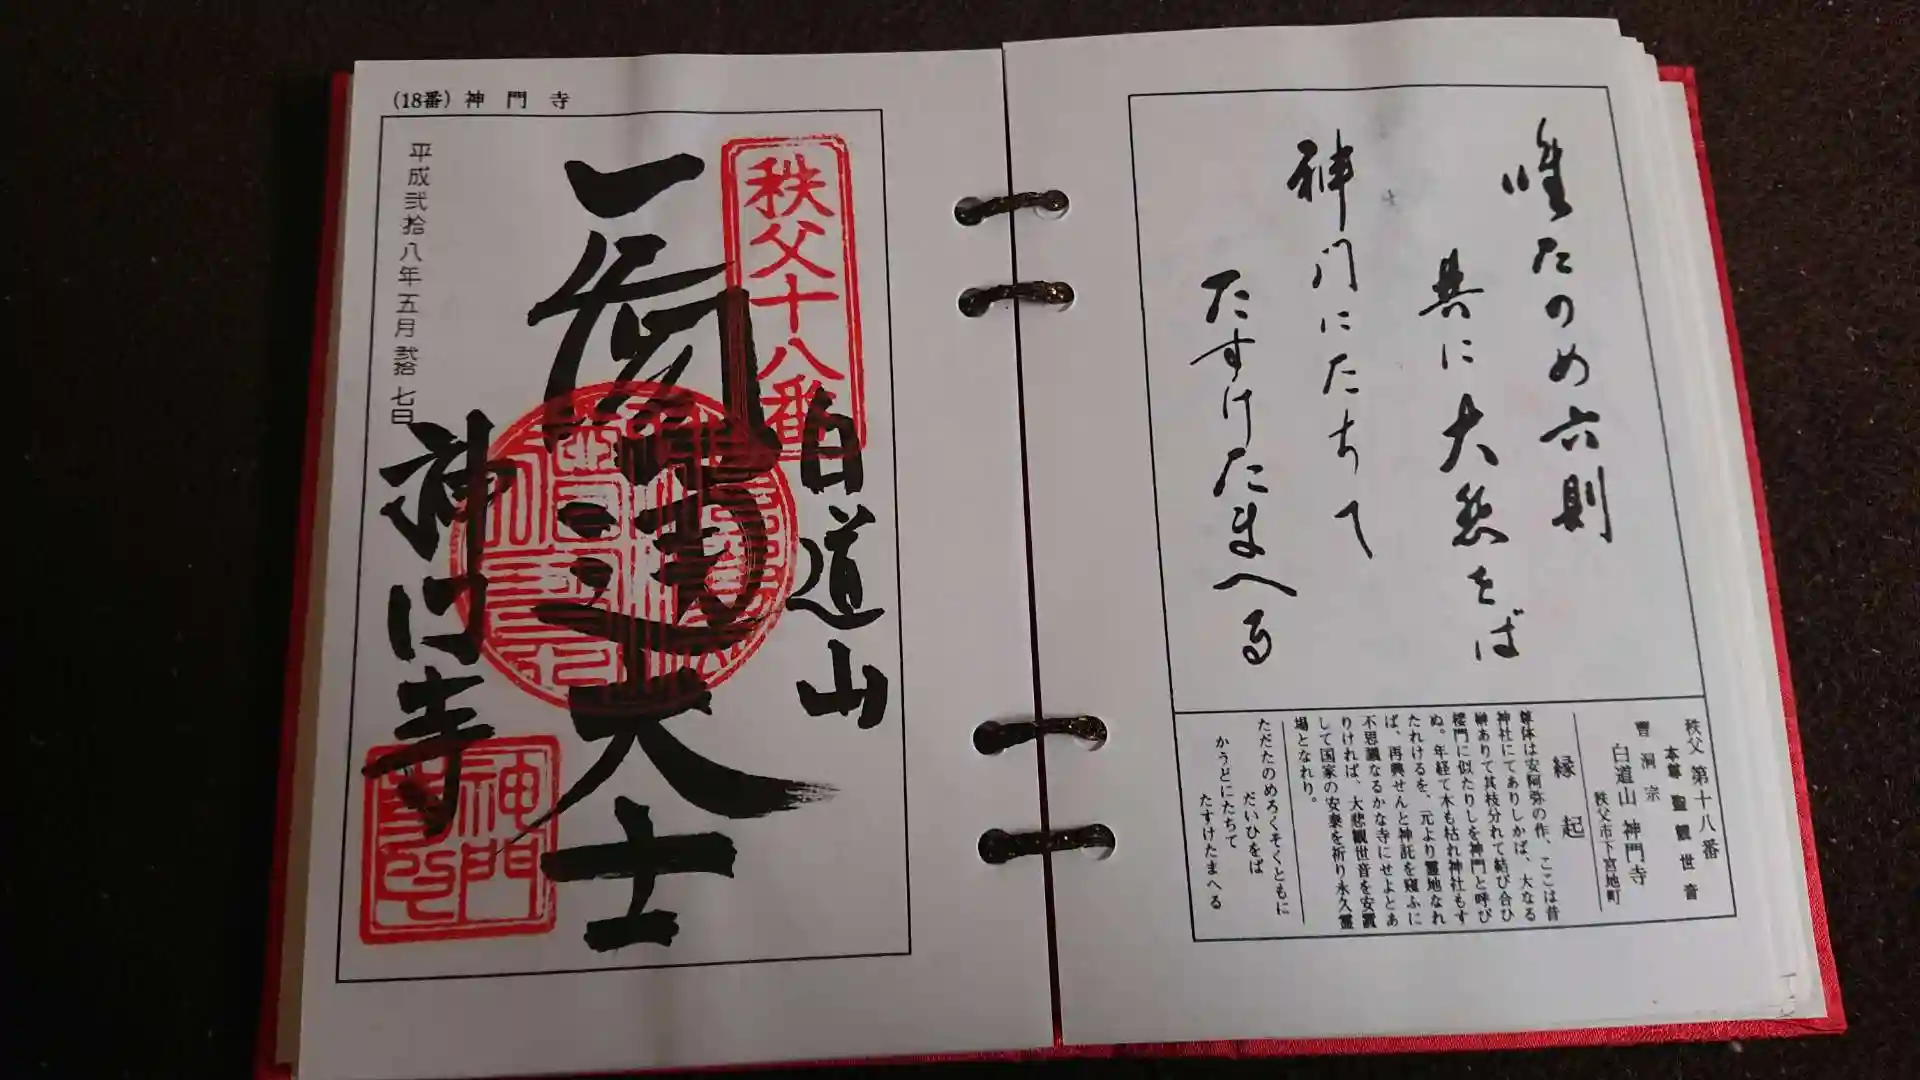 唯たのめ六則
共に大悲をば
神門にたちて
たすけたまへる
秩父第十八番
本尊 聖観世音
曹洞宗
白道山 神門寺
秩父市下宮地町
縁起
尊体は安阿弥の作、ここは昔
神社にてありしかば、大なる
榊ありて其枝分れて結び合ひ
楼門に似たりしを神門と呼び
ぬ。年経て木も枯れ神社もす
たれけるを、元より霊地なれ
ば、再興せんと神託を窺ふに
不思議なるかな寺にせよとあ
りければ、大悲観世音を安置
して国家の安泰を祈り永久霊
場となれり。
ただたのめろくそくともに
だいひをば
かうどにたちて
たすけたまへる
(18番) 神門寺
秩父十八番
白道山
大士
神門寺
平成弐拾八年五月弐拾七日
神門